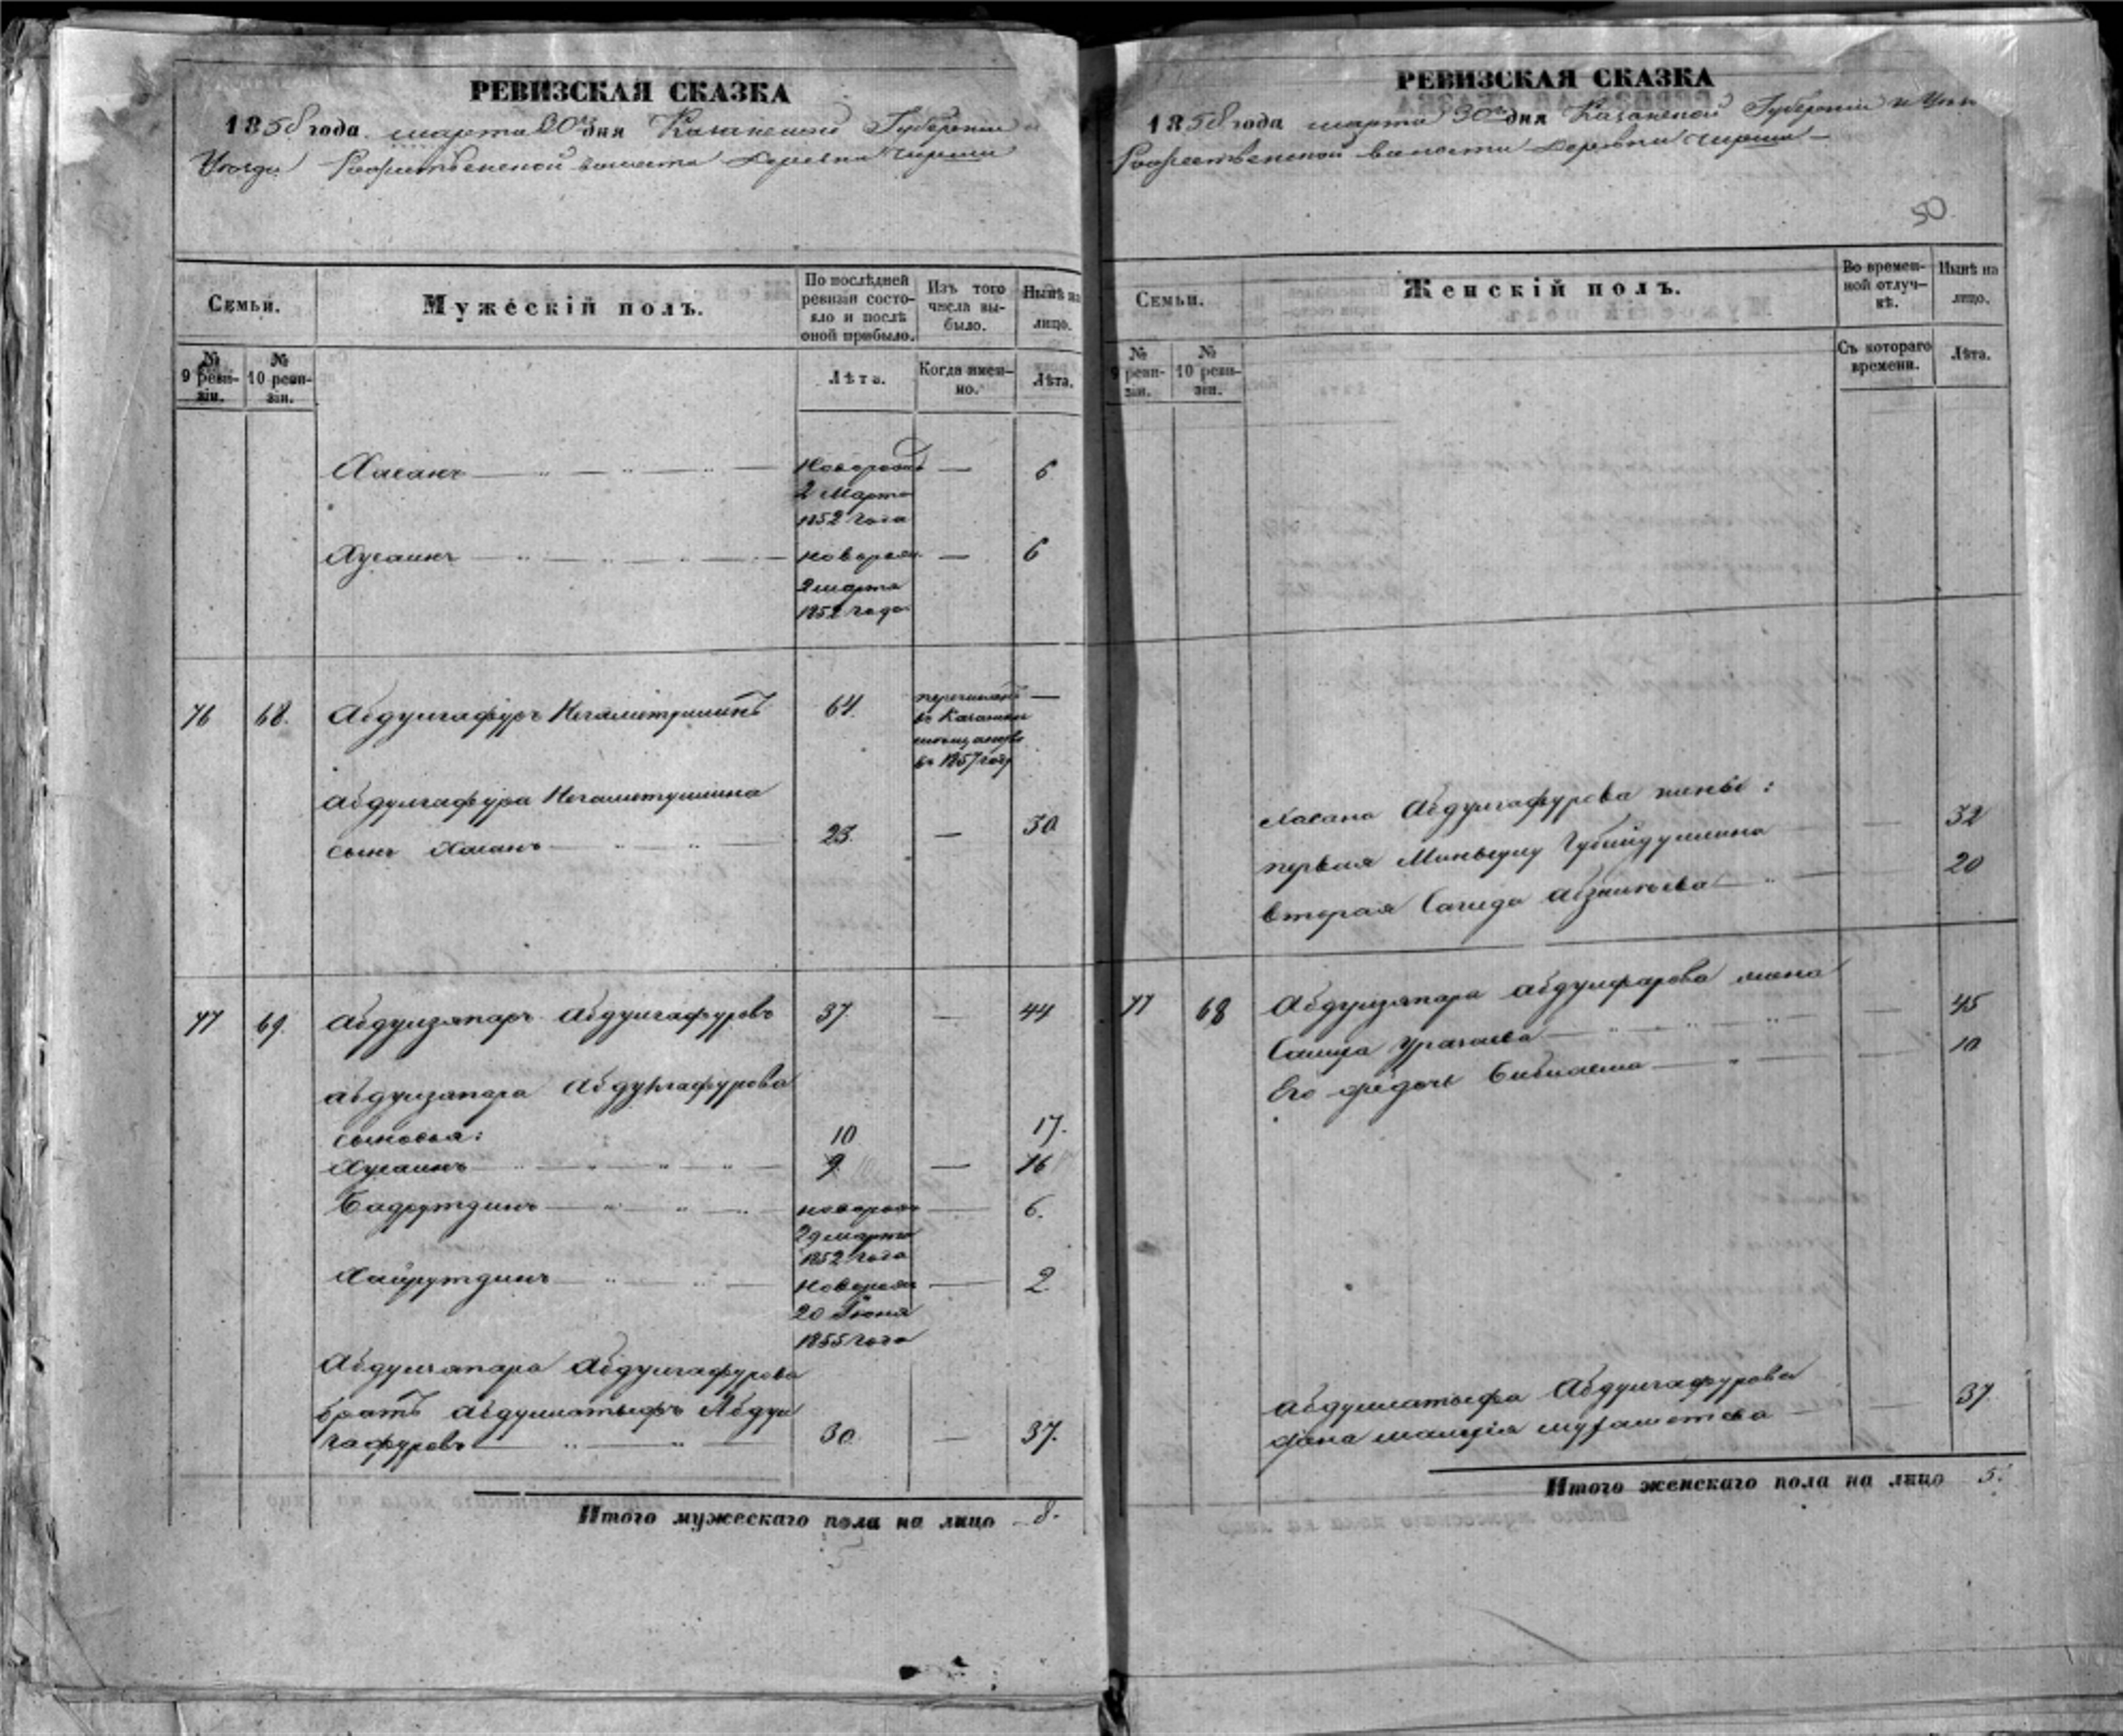 РЕВИЗСКАЯ СКАЗКА
1858 года марта 30го дня Казанской Губернии и
Уезда Рождественской волости Деревни Чирши
Семьи.
Мужескій полъ.
По послѣдней ревизіи состояло и послѣ оной прибыло.
Изъ того числа выбыло.
Нынѣ на лицо.
№ 9 ревизіи.
№ 10 ревизіи.
Лѣта.
Когда именно.
Лѣта.
Хасанъ — 6
2 Марта
1852 года
Хусаинъ — 6
2 марта
1852 года
76 68. Абдулгафуръ Негаметуллинъ 64. —
въ 1857 году
Абдулгафура Негаметуллина
сынъ Хасанъ 23. — 30
77 69. Абдулзяпаръ Абдулгафуровъ 37 — 44
Абдулзяпара Абдулгафурова
сыновья: 10 17.
Хусаинъ 9 — 16
Бадрутдинъ — 6.
29 марта
1852 года
Хайрутдинъ — 2
20 Июня
1855 года
Абдулзяпара Абдулгафурова
братъ Абдуллатыфъ Абдул
гафуровъ 30. — 37.
Итого мужескаго пола на лицо 8.
РЕВИЗСКАЯ СКАЗКА
1858 года марта 30го дня Казанской Губернии и
Рождественской волости Деревни Чирши
50
Семьи.
Женскій полъ.
Во временной отлучкѣ.
Нынѣ на лицо.
№ 9 ревизіи.
№ 10 ревизіи.
Съ котораго времени.
Лѣта.
Хасана Абдулгафурова жены:
первая Губайдуллина — 32
вторая Сагида — 20
77 68 Абдулзяпара жена
— 45
Его дочь — 10
Абдуллатыфа Абдулгафурова
жена — 37.
Итого женскаго пола на лицо 5.